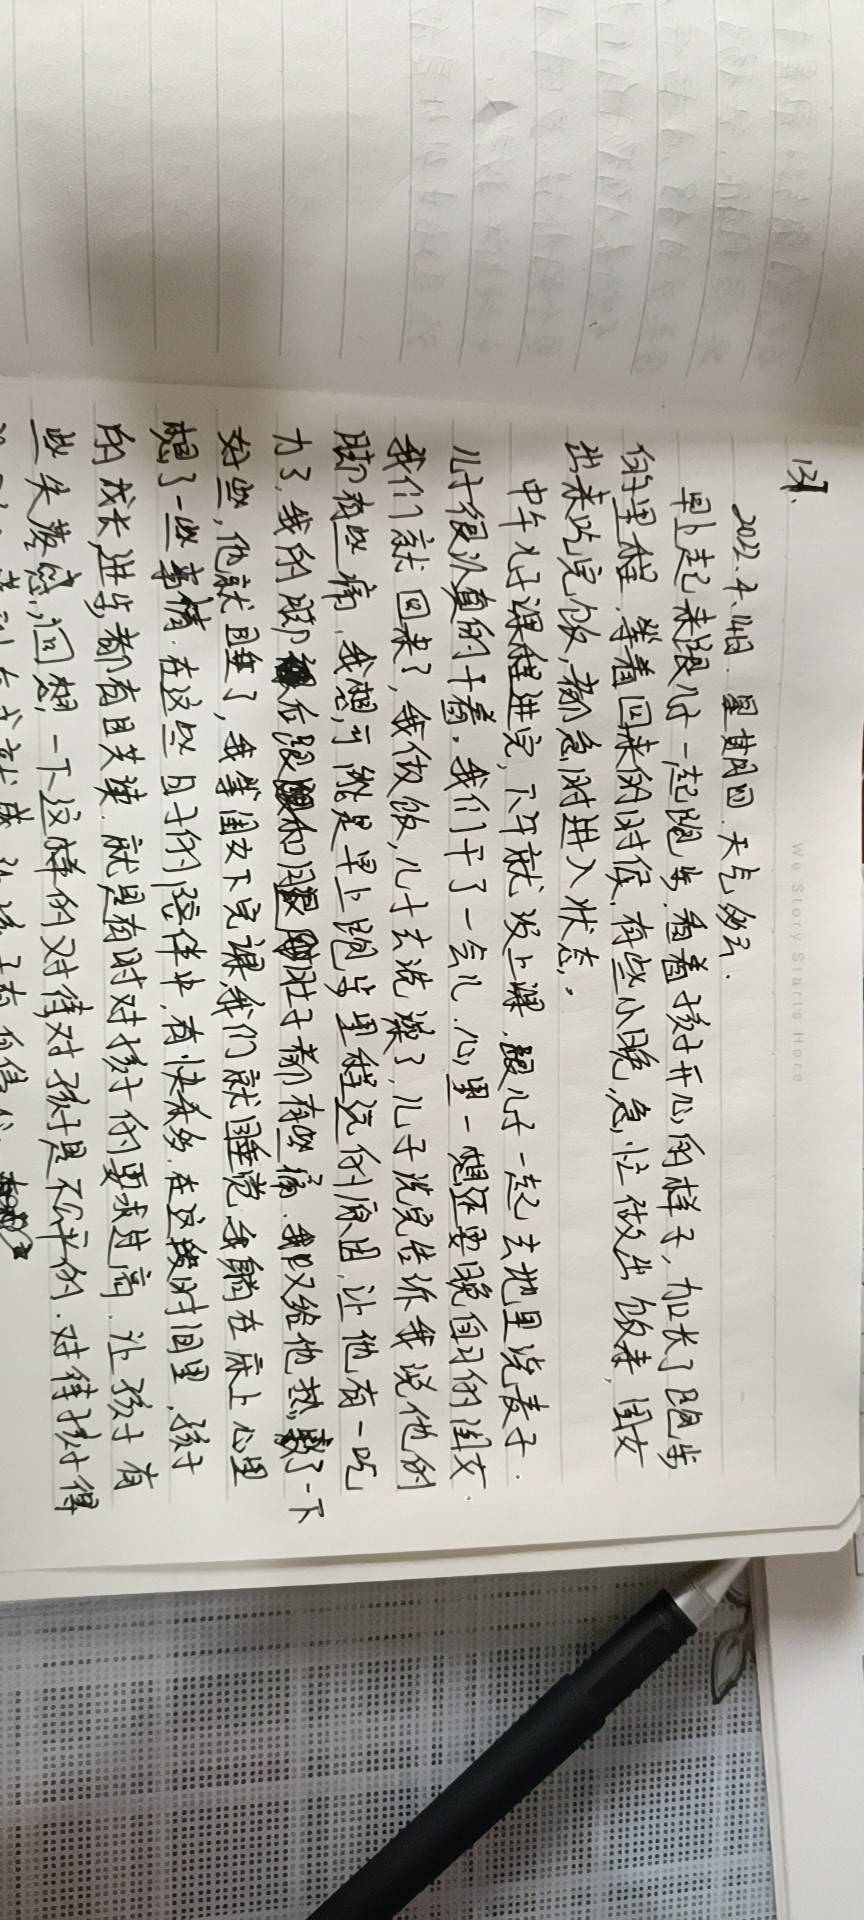 131.
We Story Starts Here
2022.4.14日.星期四.天气多云.
早上起来跟儿子一起跑步.看着孩子开心的样子,加长了跑步
的里程.等着回来的时候,有些小晚,急忙做出饭来,闺女
出来吃完饭,都急时进入状态。
中午儿子课程进完,下午就没上课.跟儿子一起去地里浇麦子.
儿子很认真的干着。我们干了一会儿.心里一想还要晚自习的闺女.
我们就回来了,我做饭,儿子去洗澡了,儿子洗完告诉我说他的
脚有些痛.我想可能是早上跑步里程远的原因.让他有一吃
力了,我的脚 后跟和小腿肚子都有些痛.我又给他热敷了一下
好些,他就睡了,我等闺女下完课,我们就睡觉.我躺在床上心里
想了一些事情.在这些日子的陪伴中,有快有多.在这段时间里,孩子
的成长进步都有目共读.就是有时对孩子的要求过高.让孩子有
些失落感,回想一下这样的对待对孩子是不公平的.对待孩子得